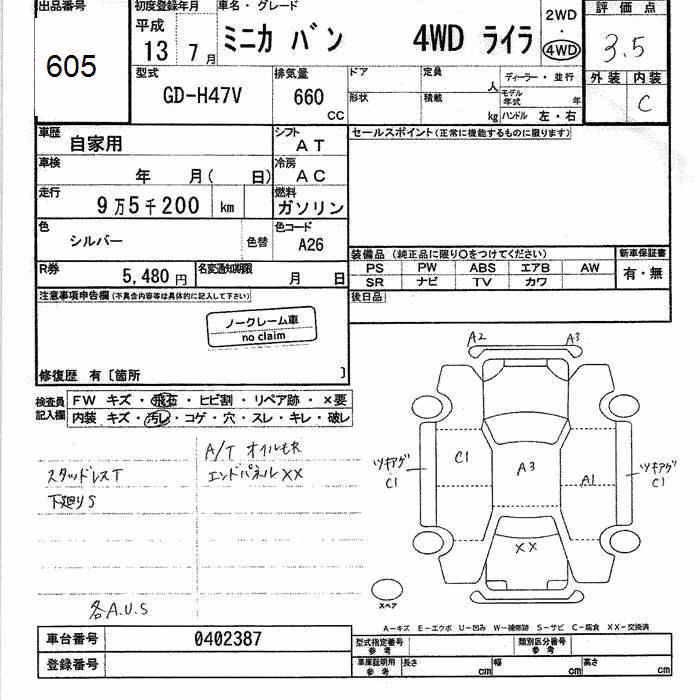 出品番号
605
初度登録年月
平成
13 7 月
車名・グレード
ミニカ バン 4WD ライラ
2WD
・
4WD
評価点
3.5
外装 内装
C
型式
GD-H47V
排気量
660
CC
ドア
定員
人
ディーラー・並行
形状
積載
kg
モデル年式 年
ハンドル 左・右
車歴
自家用
シフト
AT
セールスポイント(正常に機能するものに限ります)
車検
年 月( 日)
冷房
AC
走行
9万5千200 km
燃料
ガソリン
色
シルバー
色替
色コード
A26
装備品 (純正品に限り○をつけてください)
新車保証書
PS PW ABS エアB AW
SR ナビ TV カワ
有・無
R券
5,480 円
名変通知期限
月 日
後日品
注意事項申告欄(不具合内容等は具体的に記入して下さい)
ノークレーム車
no claim
修復歴 有〔箇所 〕
検査員
記入欄
FW キズ・飛石・ヒビ割・リペア跡・×要
内装 キズ・汚レ・コゲ・穴・スレ・キレ・破レ
A/T オイルモレ
スタッドレスT
エンドパネルXX
下廻りS
各A.U.S
A2
A3
ツキアゲ
C1
C1
A3
A1
ツキアゲ
C1
XX
スペア
A-キズ E-エクボ U-凹み W-補修跡 S-サビ C-腐食 XX-交換済
車台番号
0402387
登録番号
型式指定番号
参考
類別区分番号
参考
車庫証明用
参考
長さ cm
幅 cm
高さ cm